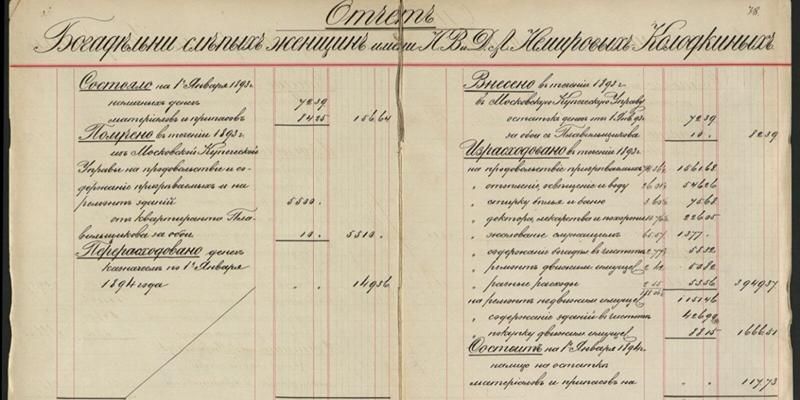 78.
Отчетъ
Богадѣльни слѣпыхъ женщинъ имени Н. В. и Д. А. Немировыхъ-Колодкиныхъ
Состояло на 1е Января 1893 г.
наличныхъ денег 7239
матеріаловъ и припасовъ 8425 15664
Получено въ теченіи 1893 г.
изъ Московской Купеческой
Управы на продовольствіе и со-
держаніе призрѣваемыхъ и на
ремонтъ зданій 5500.
отъ квартиранта Пла-
вильщикова за обои 10. 5510.
Перерасходовано денегъ
казначеемъ по 1е Января
1894 года . . 14956
Внесено въ теченіи 1893 г.
въ Московскую Купеческую Управу
остатка денегъ на 1 Янв. 93 г. 7239
за обои съ Плавильщикова 10. 8239
Израсходовано въ теченіи 1893 г.
на продовольствіе призрѣваемыхъ 156162
" отопленіе, освѣщеніе и воду 54626
" стирку бѣлья и баню 7568
" доктора, лекарства и похороны 22605
" жалованіе служащимъ 1377.
" содержаніе богадѣл. въ чистотѣ 5532
" ремонтъ движим. имущес. 5082
" разные расходы 5356 394937
на ремонтъ недвижим. имущес. 115146
" содержаніе зданій въ чистотѣ 42690
" покупку движим. имущес. 8815 166651
Состоитъ на 1е Января 1894 г.
налицо на остатка
матеріаловъ и припасовъ на . . 11773